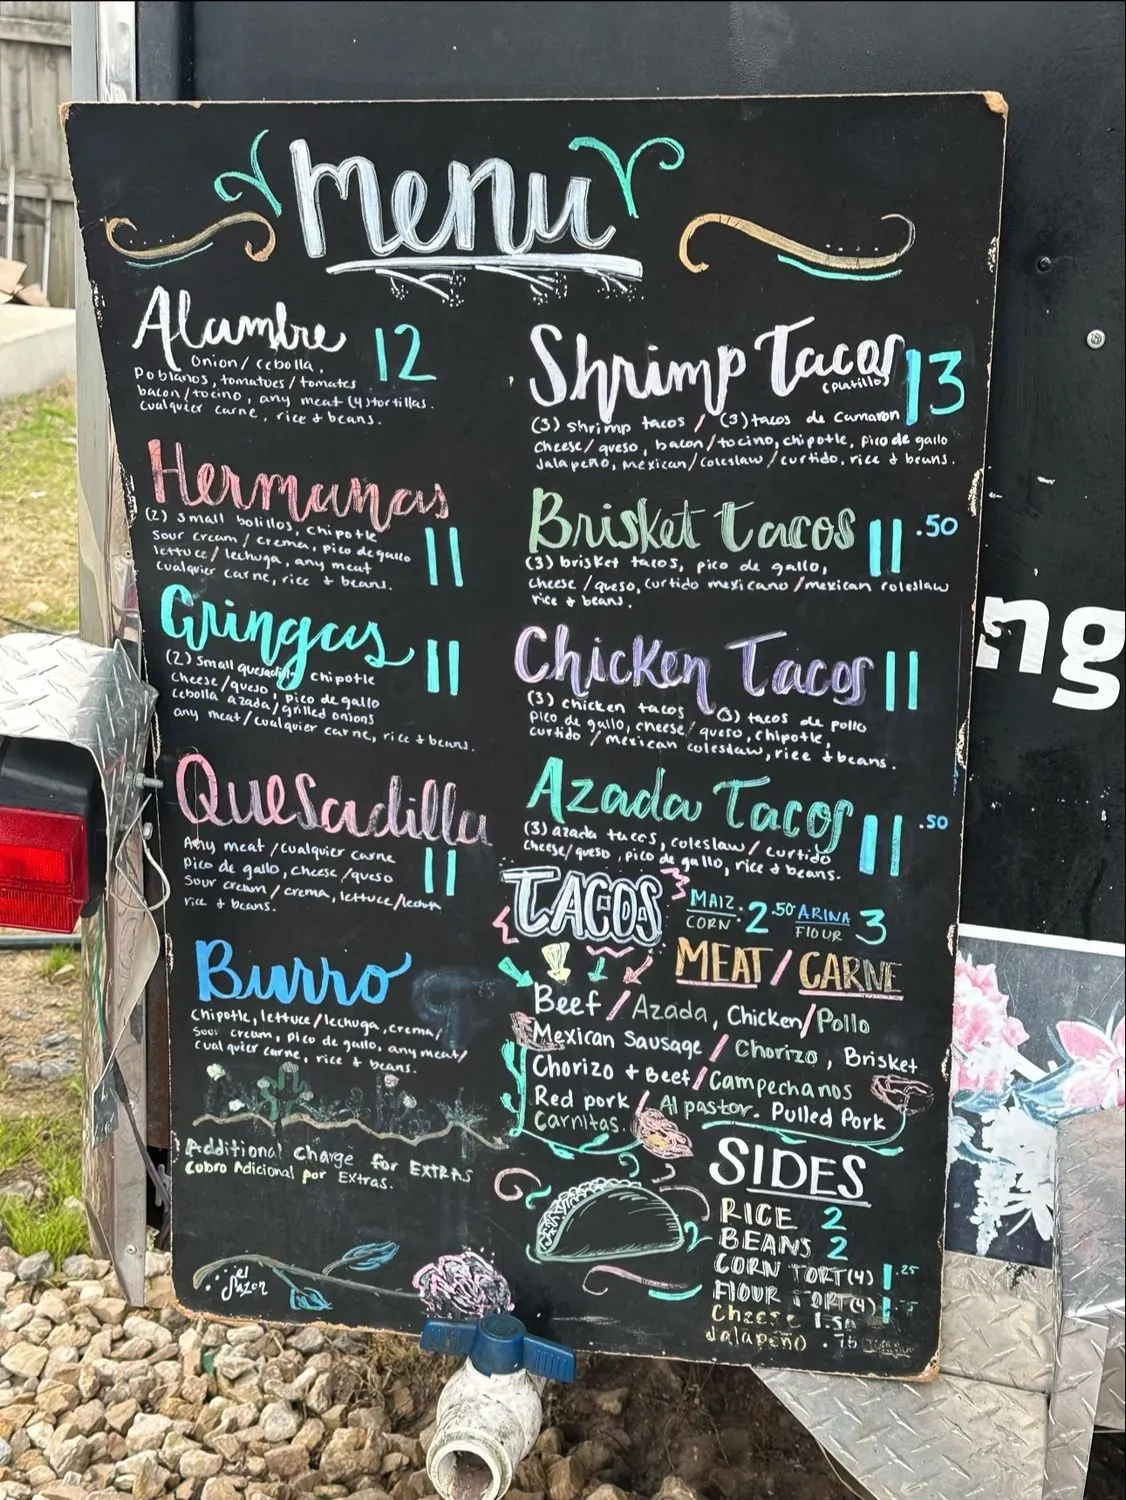 menu
Alambre 12
Onion/cebolla,
Poblanos, tomatoes/tomates
bacon/tocino, any meat (4) tortillas.
cualquier carne, rice & beans.
Hermanas 11
(2) Small bolillos, chipotle
Sour cream/crema, pico de gallo
lettuce/lechuga, any meat
cualquier carne, rice & beans.
Gringas 11
(2) Small quesadilla chipotle
Cheese/queso, pico de gallo
cebolla azada/grilled onions
any meat/cualquier carne, rice & beans.
Quesadilla 11
Any meat/cualquier carne
Pico de gallo, cheese/queso
Sour cream/crema, lettuce/lechuga
rice & beans.
Burro
Chipotle, lettuce/lechuga, crema/
Sour cream, pico de gallo, any meat/
cualquier carne, rice & beans.
Additional charge for EXTRAS
Cobro Adicional por Extras.
el Sazon
Shrimp Tacos 13
(Platillo)
(3) shrimp tacos / (3) tacos de camaron
Cheese/queso, bacon/tocino, chipotle, pico de gallo
Jalapeño, mexican/coleslaw/curtido, rice & beans.
Brisket tacos 11.50
(3) brisket tacos, pico de gallo,
cheese/queso, curtido mexicano/mexican coleslaw
rice & beans.
Chicken Tacos 11
(3) chicken tacos (3) tacos de pollo
Pico de gallo, cheese/queso, chipotle,
curtido/mexican coleslaw, rice & beans.
Azada Tacos 11.50
(3) azada tacos, coleslaw/curtido
cheese/queso, pico de gallo, rice & beans.
TACOS MAIZ. CORN. 2.50 ARINA FLOUR 3
MEAT/CARNE
Beef/Azada, Chicken/Pollo
Mexican Sausage/Chorizo, Brisket
Chorizo + Beef/Campechanos
Red pork/Al pastor. Pulled Pork
Carnitas.
SIDES
RICE 2
BEANS 2
CORN TORT(4) 1.25
FLOUR TORT(4) 1
Cheese 1.50
Jalapeño .75
ng